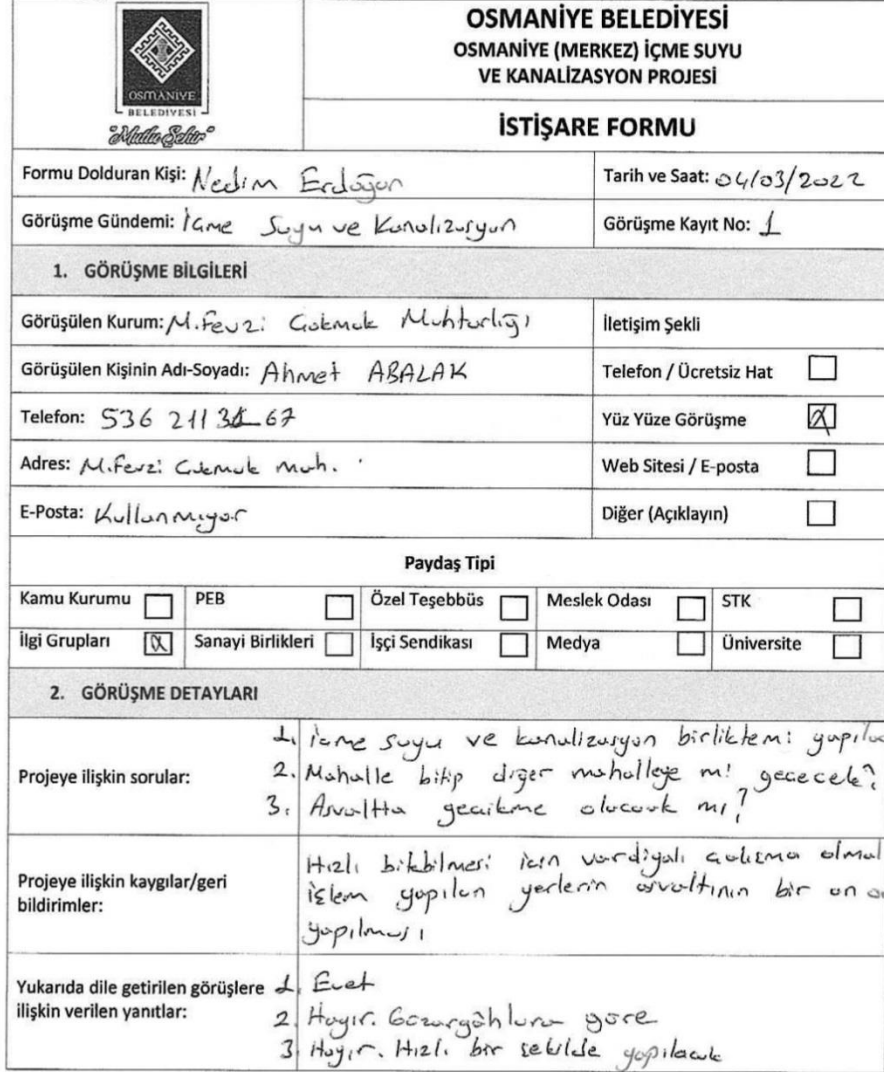 OSMANİYE
BELEDİYESİ
"Mutlu Şehir"
OSMANİYE BELEDİYESİ
OSMANİYE (MERKEZ) İÇME SUYU
VE KANALİZASYON PROJESİ
İSTİŞARE FORMU
Formu Dolduran Kişi: Nedim Erdoğan
Tarih ve Saat: 04/03/2022
Görüşme Gündemi: İçme Suyu ve Kanalizasyon
Görüşme Kayıt No: 1
1. GÖRÜŞME BİLGİLERİ
Görüşülen Kurum: M.Fevzi Çakmak Muhtarlığı
İletişim Şekli
Görüşülen Kişinin Adı-Soyadı: Ahmet ABALAK
Telefon / Ücretsiz Hat
Telefon: 536 211 67
Yüz Yüze Görüşme
Adres: M.Fevzi Çakmak Mah.
Web Sitesi / E-posta
E-Posta: Kullanmıyor
Diğer (Açıklayın)
Paydaş Tipi
Kamu Kurumu PEB Özel Teşebbüs Meslek Odası STK
İlgi Grupları Sanayi Birlikleri İşçi Sendikası Medya Üniversite
2. GÖRÜŞME DETAYLARI
Projeye ilişkin sorular:
1. İçme suyu ve kanalizasyon birliktemi yapılac
2. Mahalle bitip diğer mahalleye mi geçecek?
3. Asvaltta gecikme olacak mı?
Projeye ilişkin kaygılar/geri
bildirimler:
Hızlı bitebilmesi için vardiyalı çalışma olmal
işlem yapılan yerlerin asvaltının bir an
yapılması
Yukarıda dile getirilen görüşlere
ilişkin verilen yanıtlar:
1. Evet
2. Hayır. Güzargâhlara göre
3. Hayır. Hızlı bir şekilde yapılacak